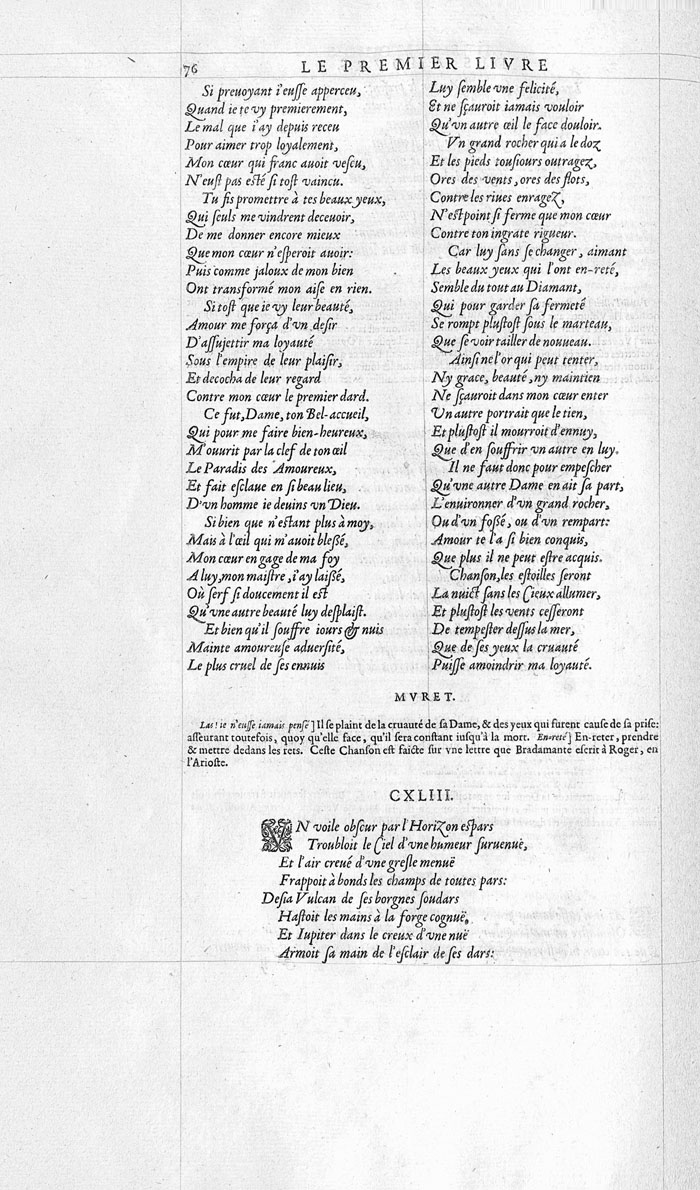 76
LE PREMIER LIVRE
Si preuoyant i'eusse apperceu,
Quand ie te vy premierement,
Le mal que i'ay depuis receu
Pour aimer trop loyalement,
Mon cœur qui franc auoit vescu,
N'eust pas esté si tost vaincu.
Tu fis promettre à tes beaux yeux,
Qui seuls me vindrent deceuoir,
De me donner encore mieux
Que mon cœur n'esperoit auoir:
Puis comme jaloux de mon bien
Ont transformé mon aise en rien.
Si tost que ie vy leur beauté,
Amour me força d'vn desir
D'assujettir ma loyauté
Sous l'empire de leur plaisir,
Et decocha de leur regard
Contre mon cœur le premier dard.
Ce fut, Dame, ton Bel-accueil,
Qui pour me faire bien-heureux,
M'ouurit par la clef de ton œil
Le Paradis des Amoureux,
Et fait esclaue en si beau lieu,
D'vn homme ie deuins vn Dieu.
Si bien que n'estant plus à moy,
Mais à l'œil qui m'auoit blessé,
Mon cœur en gage de ma foy
A luy, mon maistre, i'ay laissé,
Où serf si doucement il est
Qu'vne autre beauté luy desplaist.
Et bien qu'il souffre iours & nuis
Mainte amoureuse aduersité,
Le plus cruel de ses ennuis
Luy semble vne felicité,
Et ne sçauroit iamais vouloir
Qu'vn autre œil le face douloir.
Vn grand rocher qui a le doz
Et les pieds tousiours outragez,
Ores des vents, ores des flots,
Contre les riues enragez,
N'est point si ferme que mon cœur
Contre ton ingrate rigueur.
Car luy sans se changer, aimant
Les beaux yeux qui l'ont en-reté,
Semble du tout au Diamant,
Qui pour garder sa fermeté
Se rompt plustost sous le marteau,
Que se voir tailler de nouueau.
Ainsi ne l'or qui peut tenter,
Ny grace, beauté, ny maintien
Ne sçauroit dans mon cœur enter
Vn autre portrait que le tien,
Et plustost il mourroit d'ennuy,
Que d'en souffrir vn autre en luy.
Il ne faut donc pour empescher
Qu'vne autre Dame en ait sa part,
L'enuironner d'vn grand rocher,
Ou d'vn fossé, ou d'vn rempart:
Amour te l'a si bien conquis,
Que plus il ne peut estre acquis.
Chanson, les estoilles seront
La nuict sans les Cieux allumer,
Et plustost les vents cesseront
De tempester dessus la mer,
Que de ses yeux la cruauté
Puisse amoindrir ma loyauté.
MVRET.
Las! ie n'eusse iamais pensé] Il se plaint de la cruauté de sa Dame, & des yeux qui furent cause de sa prise:
asseurant toutefois, quoy qu'elle face, qu'il sera constant iusqu'à la mort. En-reté] En-reter, prendre
& mettre dedans les rets. Ceste Chanson est faicte sur vne lettre que Bradamante escrit à Roger, en
l'Arioste.
CXLIII.
VN voile obscur par l'Horizon espars
Troubloit le Ciel d'vne humeur suruenuë,
Et l'air creué d'vne gresle menuë
Frappoit à bonds les champs de toutes pars:
Desia Vulcan de ses borgnes soudars
Hastoit les mains à la forge cognuë,
Et Iupiter dans le creux d'vne nuë
Armoit sa main de l'esclair de ses dars: